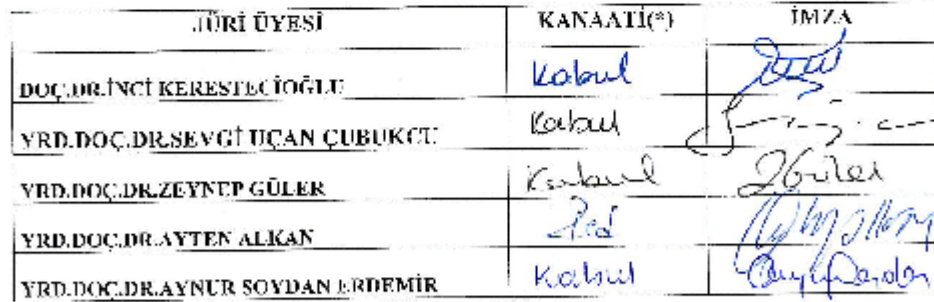 JÜRİ ÜYESİ KANAATİ(*) İMZA
DOÇ.DR.İNCİ KERESTECİOĞLU Kabul
YRD.DOÇ.DR.SEVGİ UÇAN ÇUBUKCU Kabul
YRD.DOÇ.DR.ZEYNEP GÜLER Kabul ZGüler
YRD.DOÇ.DR.AYTEN ALKAN Red
YRD.DOÇ.DR.AYNUR SOYDAN ERDEMİR Kabul